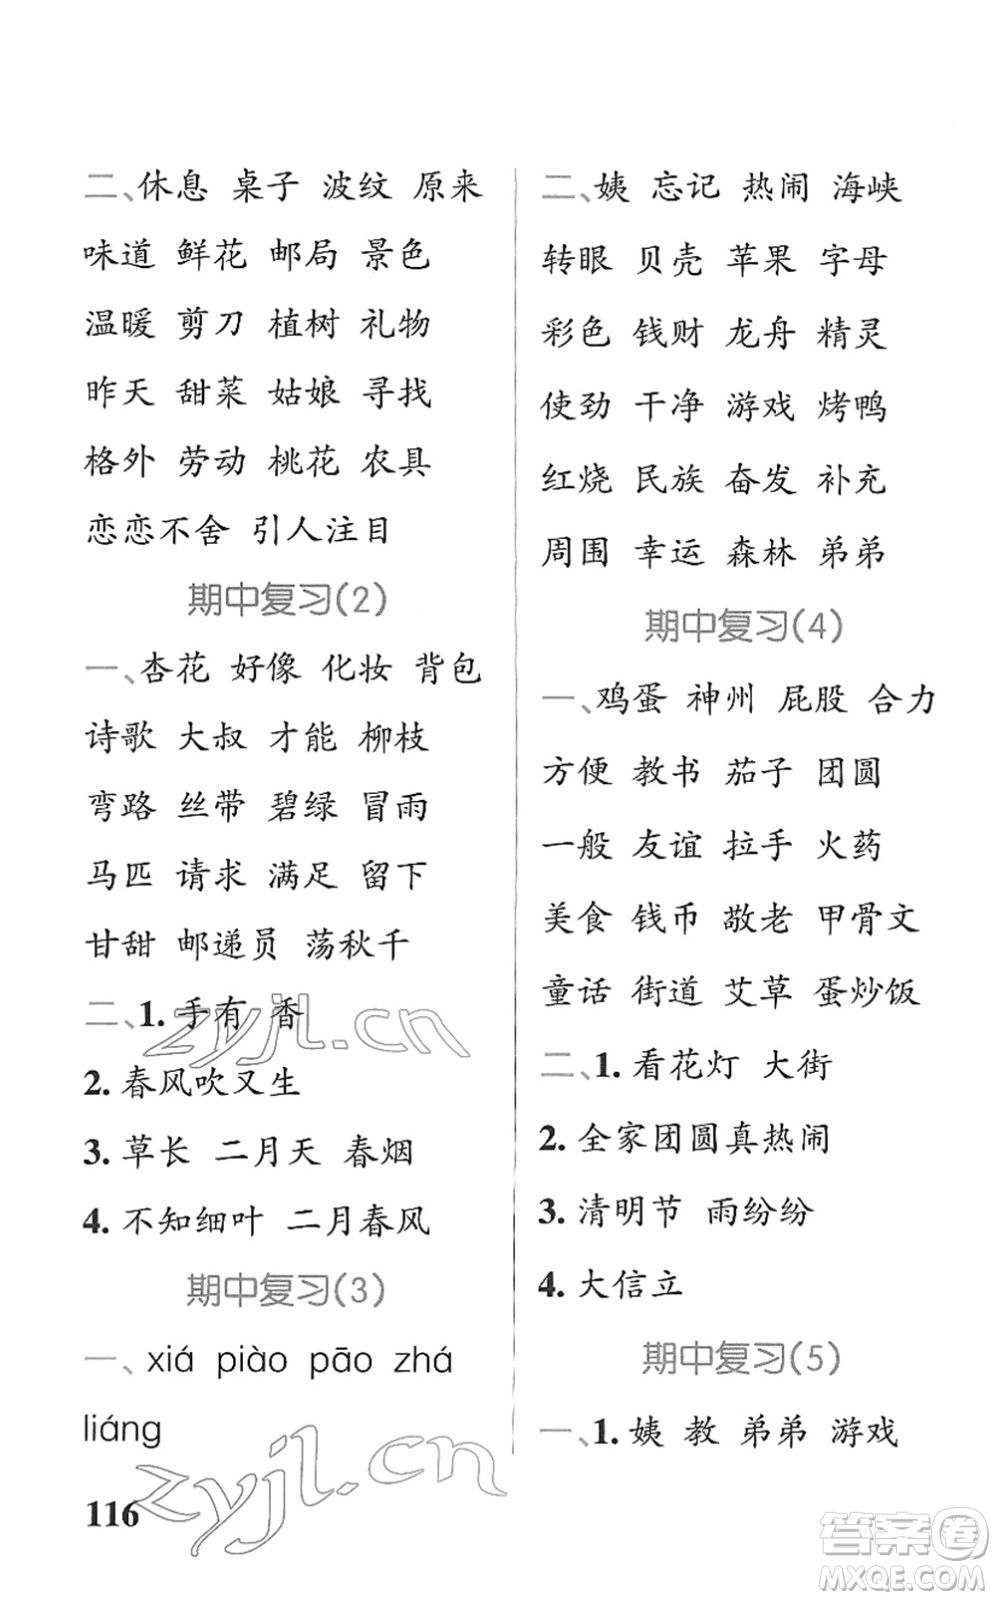 二、休息 桌子 波纹 原来
味道 鲜花 邮局 景色
温暖 剪刀 植树 礼物
昨天 甜菜 姑娘 寻找
格外 劳动 桃花 农具
恋恋不舍 引人注目
期中复习(2)
一、杏花 好像 化妆 背包
诗歌 大叔 才能 柳枝
弯路 丝带 碧绿 冒雨
马匹 请求 满足 留下
甘甜 邮递员 荡秋千
二、1. 手有 香
2. 春风吹又生
3. 草长 二月天 春烟
4. 不知细叶 二月春风
期中复习(3)
一、xiá piào pāo zhá
liáng
116
二、姨 忘记 热闹 海峡
转眼 贝壳 苹果 字母
彩色 钱财 龙舟 精灵
使劲 干净 游戏 烤鸭
红烧 民族 奋发 补充
周围 幸运 森林 弟弟
期中复习(4)
一、鸡蛋 神州 屁股 合力
方便 教书 茄子 团圆
一般 友谊 拉手 火药
美食 钱币 敬老 甲骨文
童话 街道 艾草 蛋炒饭
二、1. 看花灯 大街
2. 全家团圆真热闹
3. 清明节 雨纷纷
4. 大信立
期中复习(5)
一、1. 姨 教 弟弟 游戏
zyjl.cn
zyjl.cn
答案卷
MXQE.COM